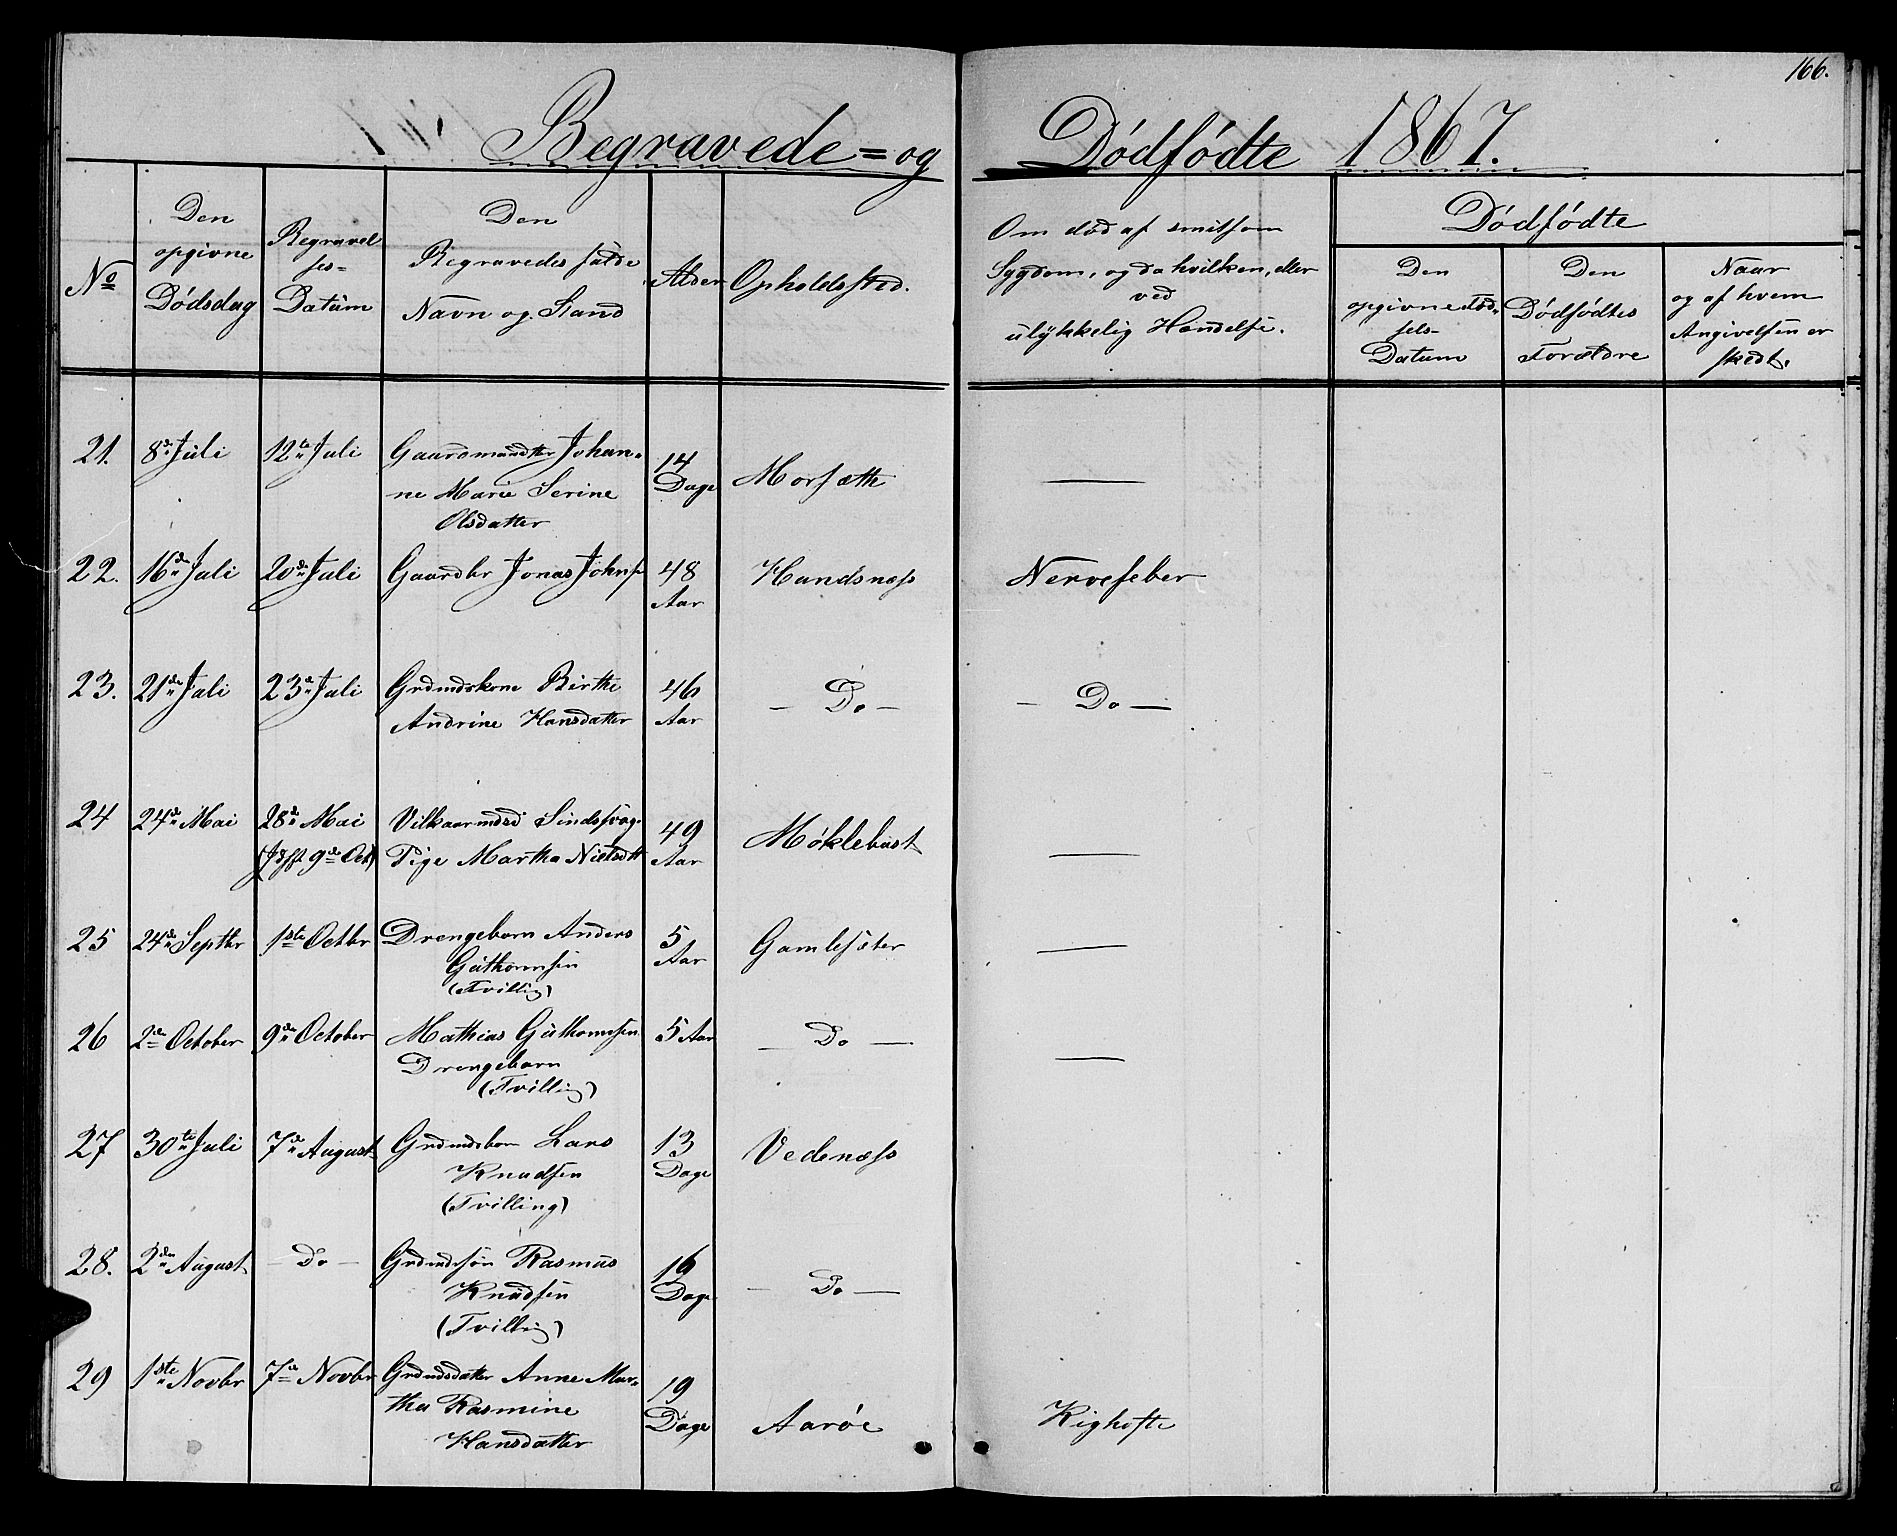 166.
Begravede = og Dødfødte 1867.
No
Den
opgivne
Dødsdag
Begravel
ses-
Datum
Den
Begravedes fulde
Navn og Stand
Alder
Opholdssted.
Om død af smitsom
Sygdom, og da hvilken, eller
ved
ulykkelig Hændelse.
Dødfødte
Den
opgivne Fød-
sels-
Datum
Den
Dødfødtes
Forældre
Naar
og af hvem
Angivelsen er
skedt.
21. 8de Juli 12te Juli Gaardmandsdtter Johan-
ne Marie Serine
Olsdatter
14
Dage
Morsætte —
22. 16de Juli 20de Juli Gaardbr Jonas Johns
48
Aar
Hundsnæss Nervefeber
23. 21de Juli 23de Juli Grdmdskone Birthe
Andrine Hansdatter
46
Aar
- Do - - Do -
24 24de Mai 28de Mai
9de Oct)
Sindssvag
Pige Martha Nielsdtt
49
Aar
Møklebust —
25 24de Septbr 1ste Octbr Drengebarn Anders
Guthormsen
(Tvilling)
5
Aar
Gamlesæter —
26 2de October 9de October Mathias Guthormsen
Drengebarn
(Tvilling)
5 Aar
- Do - —
27 30te Juli 7de August Lars
Knudsen
(Tvilling)
13
Dage
Vedenæss
28. 2den August - Do - Grdmdssøn Rasmus
Knudsen
(Tvilling)
16
Dage
- Do -
29 1ste Novbr 7de Novbr Grdmdsdatter Anne Mar-
tha Rasmine
Hansdatter
19
Dage
Aarøe Kighoste